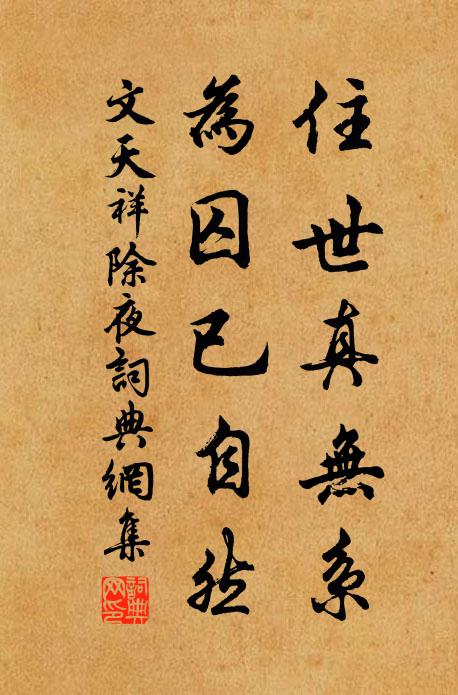 住世真無系
為囚已自然
文天祥除夜詞典網集
詞典網印